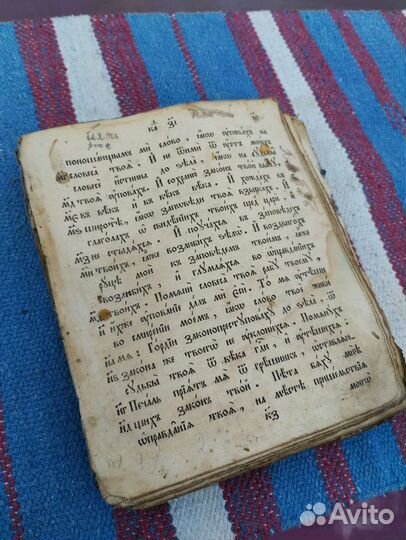 ка҃ з҃і
поношающымъ ми слово, ꙗкѡ ᲂуповахъ на
м҃г словеса твоѧ. И не ѿими ѿ ᲂустъ моихъ
словесе истинна до ѕѣла, ꙗкѡ на судбы
м҃д твоѧ ᲂуповахъ. И сохраню законъ твой
м҃є въ вѣкъ и въ вѣкъ вѣка. И хождахъ въ
м҃ѕ широтѣ, ꙗкѡ заповѣди твоѧ взыскахъ. И
глаголахъ ѡ свидѣнїихъ твоихъ пред цари, и
м҃з не стыдѧхсѧ. И поучахсѧ въ заповѣдех
м҃и твоихъ, ꙗже возлюбихъ ѕѣлѡ. И воздвигохъ
руцѣ мои къ заповѣдемъ твоимъ, ꙗже
возлюбихъ, и глумлѧхсѧ во ѡправданїихъ
м҃ѳ твоихъ. Помѧни словеса твоѧ рабу твоему,
н҃ ихже ᲂупованїе далъ ми еси. То мѧ ᲂутѣши
во смиренїи моемъ, ꙗкѡ слово твое живи
н҃а мѧ. Гордїи законопреступоваху до ѕѣла, ѿ
н҃в закона же твоегѡ не ᲂуклонихсѧ. Помѧнухъ
судьбы твоѧ ѿ вѣка гд҃и, и ᲂутѣшихсѧ.
н҃г Печаль прїѧтъ мѧ ѿ грѣшникъ, ѡставлѧю
н҃д щихъ законъ твой. Пѣта бѧху мнѣ
ѡправданїѧ твоѧ, на мѣстѣ пришелствїѧ
моегѡ
к҃з
Avito